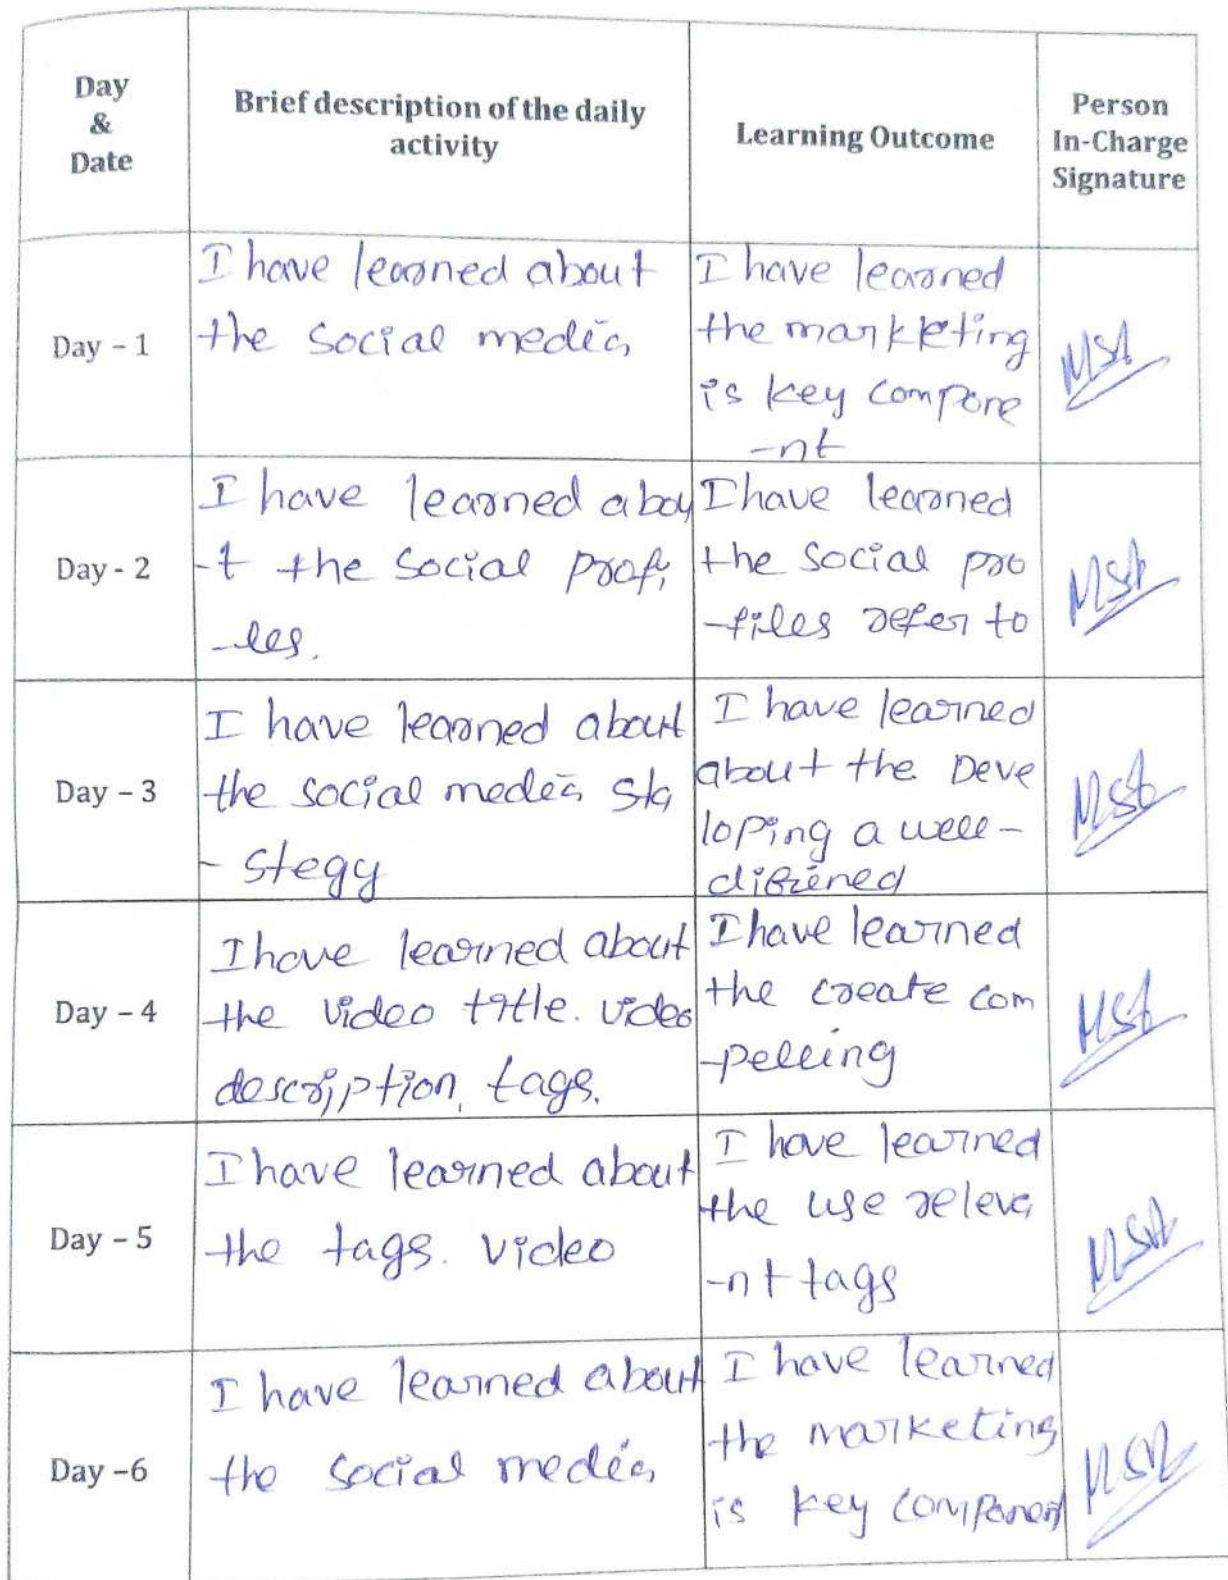 Day
&
Date
Brief description of the daily
activity
Learning Outcome
Person
In-Charge
Signature
Day - 1
I have learned about
the social media
I have learned
the markketing
is key compone
-nt
MSA
Day - 2
I have learned abou
-t the social profi
-les.
I have learned
the social pro
-files refer to
MSA
Day - 3
I have learned about
the social media sta
- stegy
I have learned
about the Deve
loping a well-
MSA
Day - 4
I have learned about
the video title. video
description, tags.
I have learned
the create com
-pelling
MSA
Day - 5
I have learned about
the tags. video
I have learned
the use releva
-nt tags
MSA
Day -6
I have learned about
the social media
I have learned
the marketing
is key component
MSA